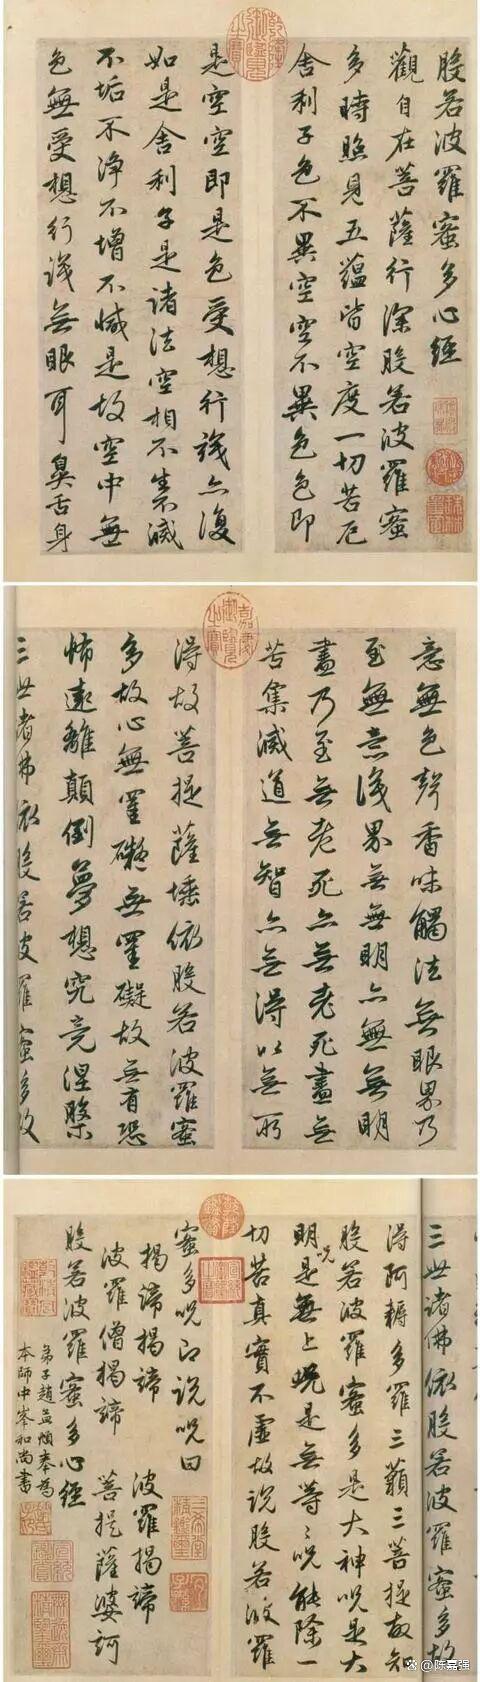 般若波羅蜜多心經
觀自在菩薩行深般若波羅蜜
多時照見五蘊皆空度一切苦厄
舍利子色不異空空不異色色即
是空空即是色受想行識亦復
如是舍利子是諸法空相不生不滅
不垢不淨不增不減是故空中無
色無受想行識無眼耳鼻舌身
意無色聲香味觸法無眼界乃
至無意識界無無明亦無無明
盡乃至無老死亦無老死盡無
苦集滅道無智亦無得以無所
得故菩提薩埵依般若波羅蜜
多故心無罣礙無罣礙故無有恐
怖遠離顛倒夢想究竟涅槃
三世諸佛依般若波羅蜜多故
三世諸佛依般若波羅蜜多故
得阿耨多羅三藐三菩提故知
般若波羅蜜多是大神呪是大
明呪是無上呪是無等〻呪能除一
切苦真實不虛故說般若波羅
蜜多呪即說呪曰
揭諦揭諦 波羅揭諦
波羅僧揭諦 菩提薩婆訶
般若波羅蜜多心經
弟子趙孟頫奉為
本師中峯和尚書
@陈嘉强